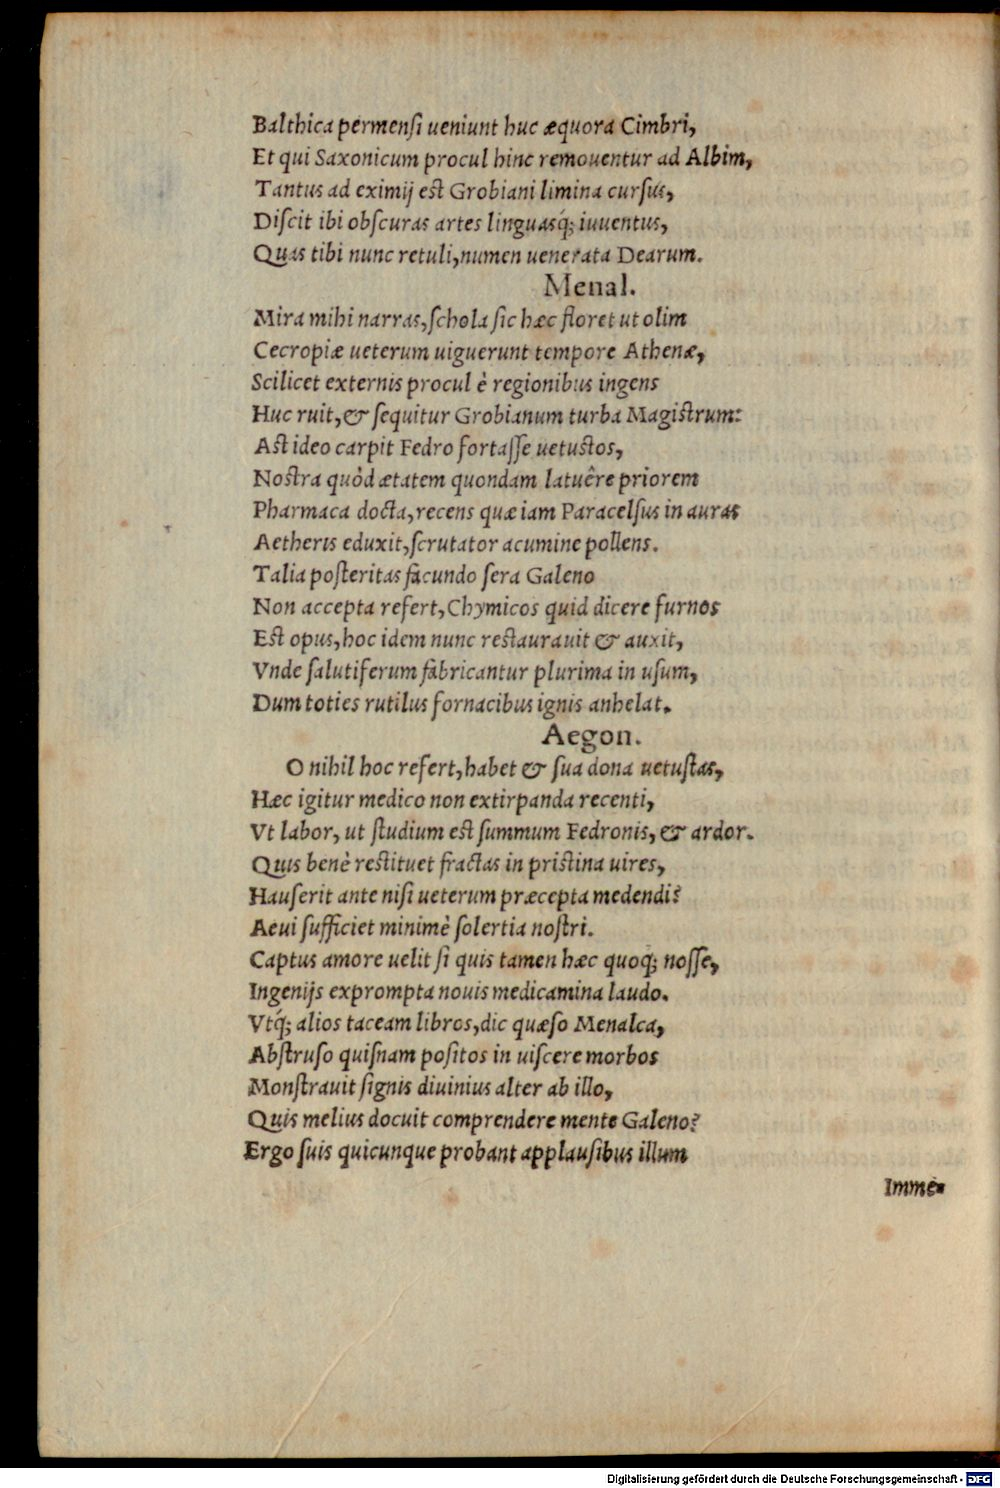 Balthica permenſi ueniunt huc æquora Cimbri,
Et qui Saxonicum procul hinc remouentur ad Albim,
Tantus ad eximij est Grobiani limina curſus,
Diſcit ibi obſcuras artes linguasq́; iuuentus,
Quas tibi nunc retuli, numen uenerata Dearum.
Menal.
Mira mihi narras, ſchola ſic hæc floret ut olim
Cecropiæ ueterum uiguerunt tempore Athenæ,
Scilicet externis procul è regionibus ingens
Huc ruit, & ſequitur Grobianum turba Magistrum:
Ast ideo carpit Fedro fortaſſe uetustos,
Nostra quòd ætatem quondam latuêre priorem
Pharmaca docta, recens quæ iam Paracelſus in auras
Aetheris eduxit, ſcrutator acumine pollens.
Talia posteritas facundo ſera Galeno
Non accepta refert, Chymicos quid dicere furnos
Est opus, hoc idem nunc restaurauit & auxit,
Vnde ſalutiferum fabricantur plurima in uſum,
Dum toties rutilus fornacibus ignis anhelat.
Aegon.
O nihil hoc refert, habet & ſua dona uetuſtas,
Hæc igitur medico non extirpanda recenti,
Vt labor, ut ſtudium est ſummum Fedronis, & ardor.
Quis benè restituet fractas in pristina uires,
Hauſerit ante niſi ueterum præcepta medendi?
Aeui ſufficiet minimè ſolertia nostri.
Captus amore uelit ſi quis tamen hæc quoq; noſſe,
Ingenijs exprompta nouis medicamina laudo.
Vtq́; alios taceam libros, dic quæſo Menalca,
Abſtruſo quiſnam poſitos in uiſcere morbos
Monſtrauit ſignis diuinius alter ab illo,
Quis melius docuit comprendere mente Galeno?
Ergo ſuis quicunque probant applauſibus illum
Imme-
Digitalisierung gefördert durch die Deutsche Forschungsgemeinschaft - DFG